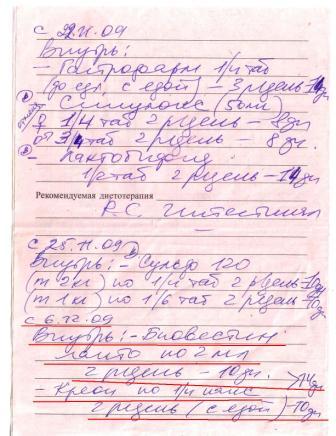 с 21.11.09
Внутрь:
– Гастрофарм 1/4 таб
(до еды, с едой) – 3 р/день –
Синулокс (50мг)
♀ 1/4 таб 2 р/день – 8дн
♂ 3/4 таб 2 р/день – 8 дн.
– Лактобифид
1/2 таб 2 р/день – 14дн
Рекомендуемая диетотерапия
R.C. Интестинал
с 25.11.09
Внутрь: – 120
(m 2кг) по 1/4 таб 2 р/день –
(m 1кг) по 1/6 таб 2 р/день –
с 6.12.09
Внутрь: – Биовестин
лакто по 2 мл
2 р/день – 10дн. 14дн
– Креон по 1/4 капс
2 р/день (с едой) – 10дн